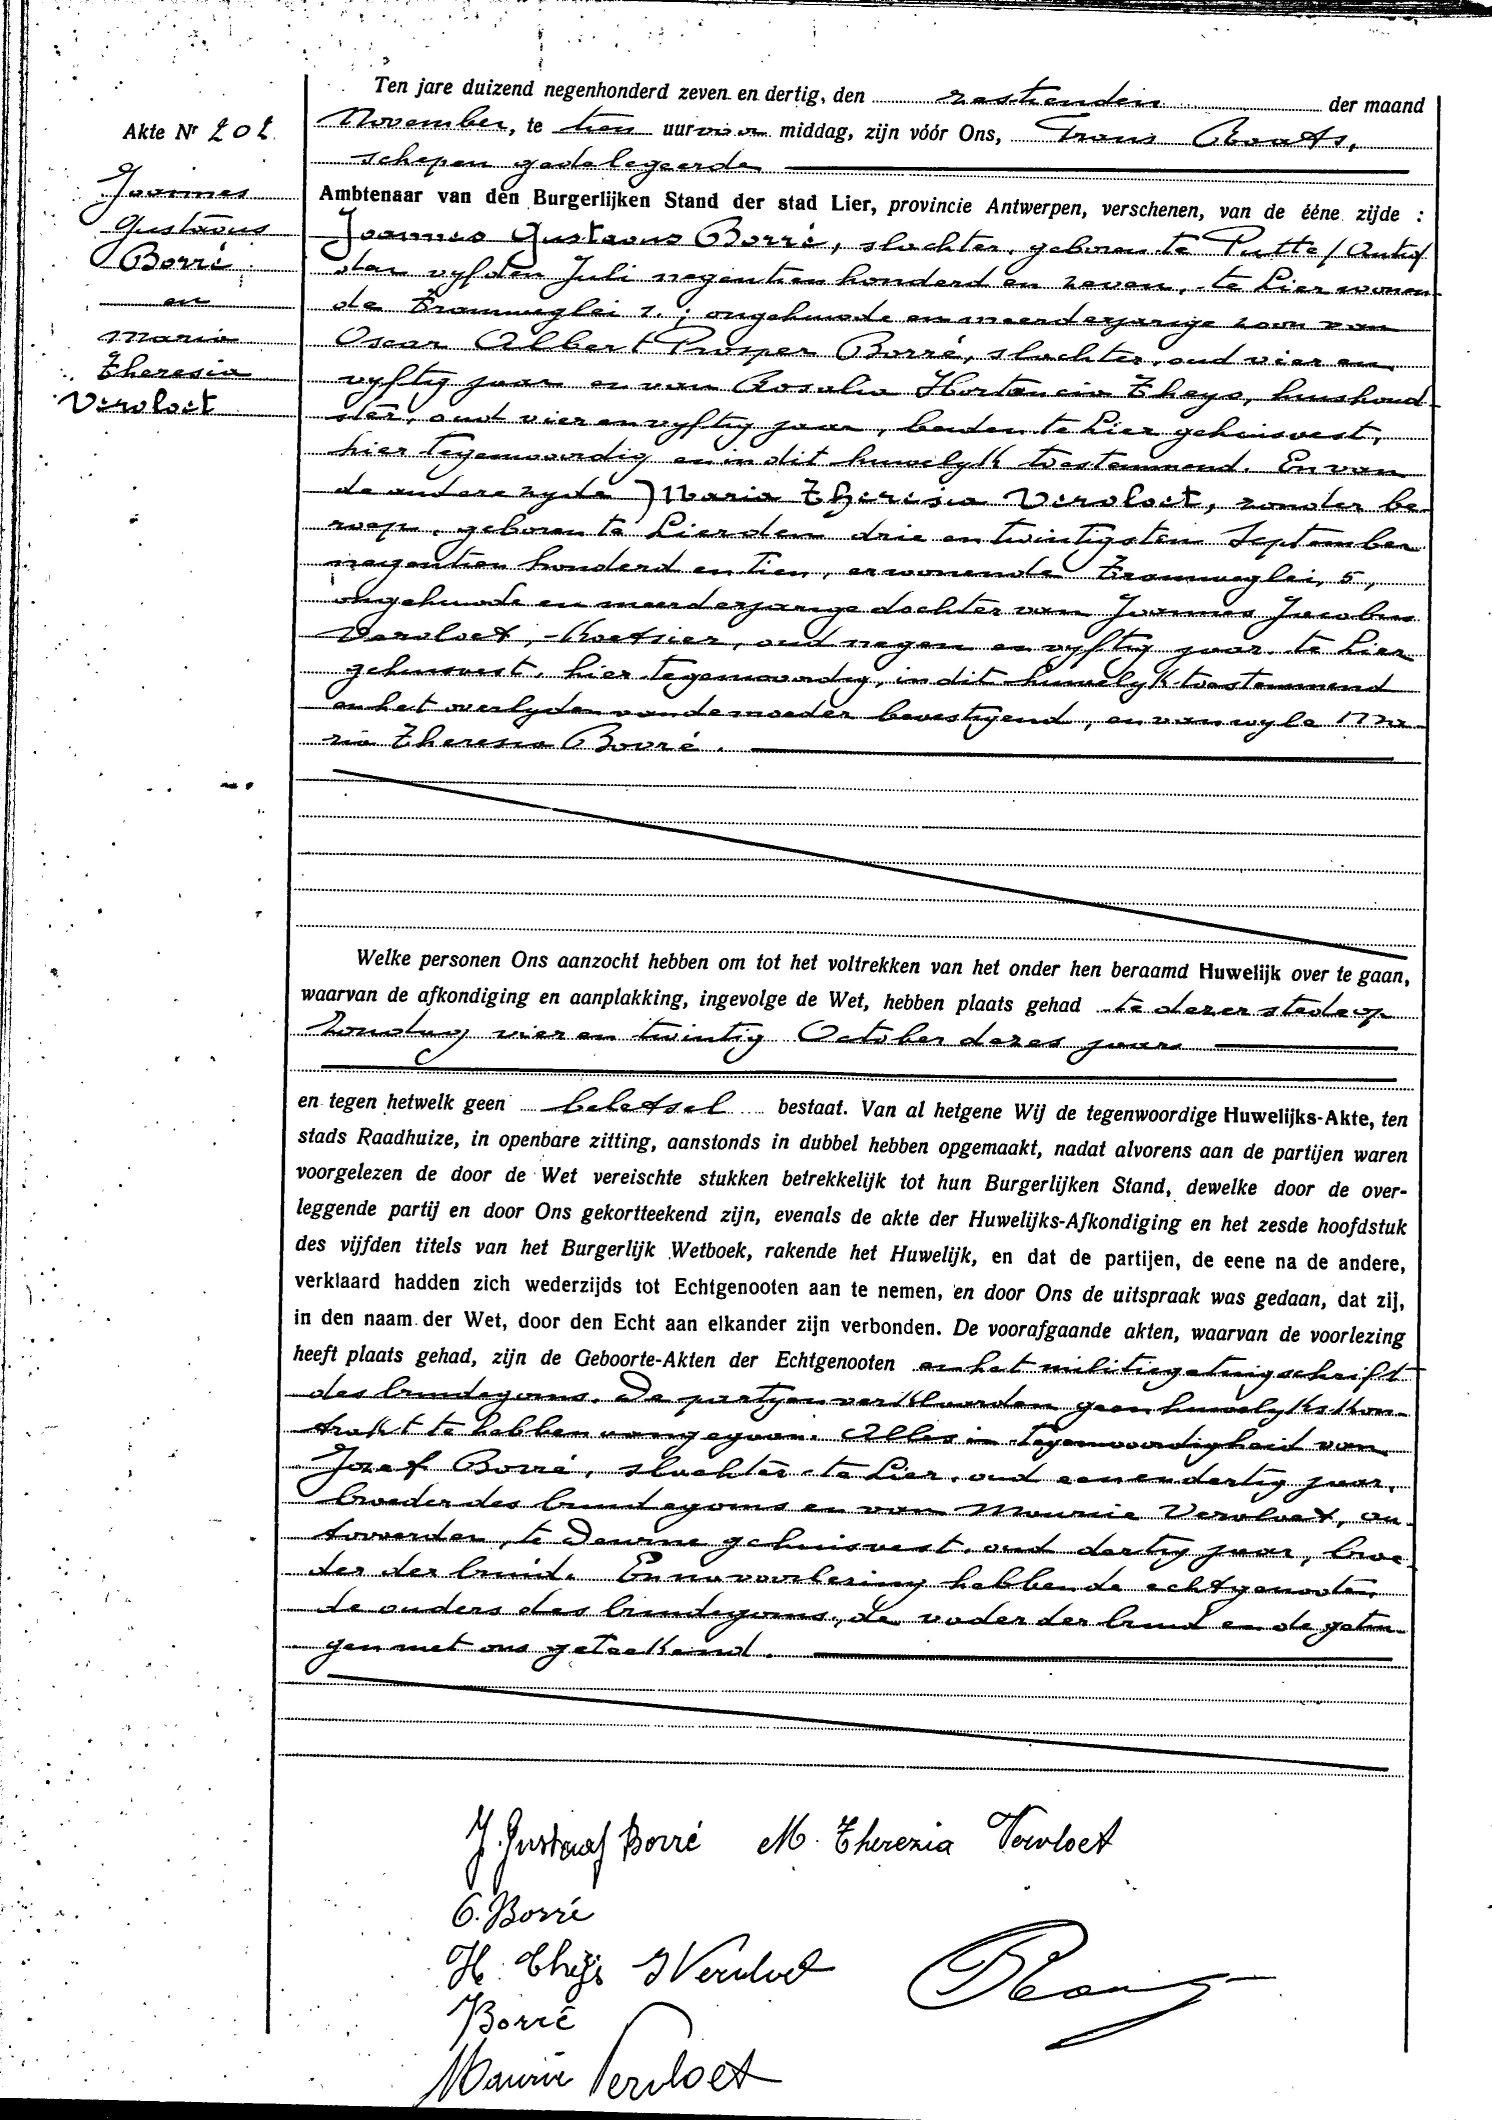 Akte Nr 202
Joannes
Gustavus
Borré
en
Maria
Theresia
Vervloet
Ten jare duizend negenhonderd zeven en dertig, den zestienden der maand
November, te tien uur voor middag, zijn vóór Ons, Frans
schepen gedelegeerde
Ambtenaar van den Burgerlijken Stand der stad Lier, provincie Antwerpen, verschenen, van de ééne zijde :
Joannes Gustavus Borré, slachter, geboren te Putte / Antw/
den vyfden Juli negentien honderd en zeven, te Lier wonen-
de Tramweglei 1. ; ongehuwde en meerderjarige zoon van
Oscar Albert Prosper Borré, slachter, oud vier en
vyftig jaar en van Rosalia Hortencia Theys, huishoud-
ster, oud vier en vyftig jaar, beiden te Lier gehuisvest,
hier tegenwoordig en in dit huwelyk toestemmend. En van
de andere zyde Maria Theresia Vervloet, zonder be-
roep, geboren te Lier den drie en twintigsten September
negentien honderd en tien, er wonende Tramweglei, 5,
ongehuwde en meerderjarige dochter van Joannes Jacobus
Vervloet, Koetsier, oud negen en vyftig jaar te Lier
gehuisvest, hier tegenwoordig, in dit huwelyk toestemmend
en het overlyden van de moeder bevestigend, en van wyle Ma-
ria Theresia Bovré.
Welke personen Ons aanzocht hebben om tot het voltrekken van het onder hen beraamd Huwelijk over te gaan,
waarvan de afkondiging en aanplakking, ingevolge de Wet, hebben plaats gehad te dezer stede op
Zondag vier en twintig October dezes jaars
en tegen hetwelk geen beletsel bestaat. Van al hetgene Wij de tegenwoordige Huwelijks-Akte, ten
stads Raadhuize, in openbare zitting, aanstonds in dubbel hebben opgemaakt, nadat alvorens aan de partijen waren
voorgelezen de door de Wet vereischte stukken betrekkelijk tot hun Burgerlijken Stand, dewelke door de over-
leggende partij en door Ons gekortteekend zijn, evenals de akte der Huwelijks-Afkondiging en het zesde hoofdstuk
des vijfden titels van het Burgerlijk Wetboek, rakende het Huwelijk, en dat de partijen, de eene na de andere,
verklaard hadden zich wederzijds tot Echtgenooten aan te nemen, en door Ons de uitspraak was gedaan, dat zij,
in den naam der Wet, door den Echt aan elkander zijn verbonden. De voorafgaande akten, waarvan de voorlezing
heeft plaats gehad, zijn de Geboorte-Akten der Echtgenooten en het militiegetuigschrift
des bruidegoms. De partyen verklaarden geen huwelyks kon-
trakt te hebben aangegaan. Alles in tegenwoordigheid van
Jozef Borré, slachter te Lier, oud een en dertig jaar,
broeder des bruidegoms en van Maurice Vervloet, au-
tovoerder, te Deurne gehuisvest, oud dertig jaar, broe-
der der bruid. En na voorlezing hebben de echtgenooten
de ouders des bruidegoms, de vader der bruid en de getui-
gen met ons geteekend.
J. Gustaaf Borré M. Therezia Vervloet
O. Borré
H. Theys J Vervloet
J Borré
Maurice Vervloet